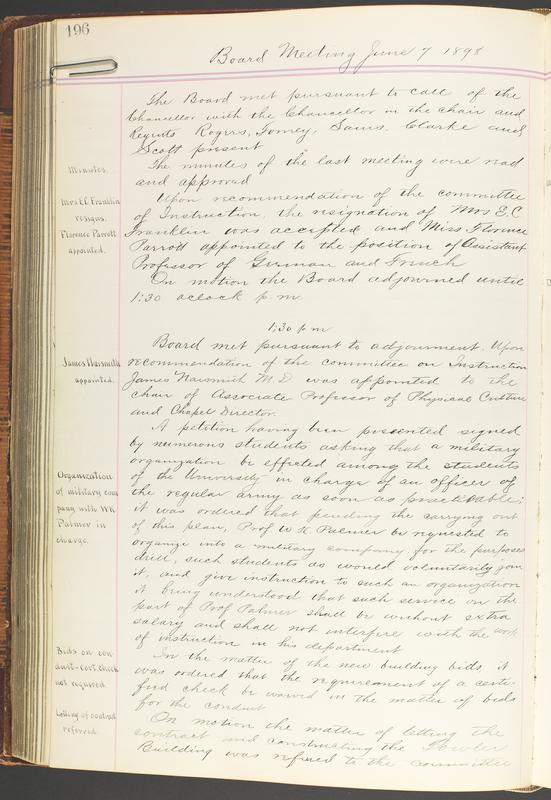 196
Board Meeting June 7 1898
The Board met pursuant to call of the
Chancellor with the Chancellor in the chair and
Regents Rogers, Fomey, Sams, Clarke and
Scott present
Minutes.
The minutes of the last meeting were read
and approved
Mrs E.C. Franklin
resigns.
Florence Parrott
appointed.
Upon recommendation of the committee
of Instruction, the resignation of Mrs E.C.
Franklin was accepted and Miss Florence
Parrott appointed to the position of Assistant
Professor of German and French
On motion the Board adjourned until
1:30 oclock p.m.
1:30 p m
Board met pursuant to adjournment. Upon
James Naismith
appointed.
recommendation of the committee on Instruction
James Naismith M.D. was appointed to the
chair of Associate Professor of Physical Culture
and Chapel Director.
A petition having been presented signed
by numerous students asking that a military
organization be effected among the students
Organization
of military com
pany with W.K
Palmer in
charge.
of the University in charge of an officer of
the regular army as soon as practicable;
it was ordered that pending the carrying out
of this plan, Prof W K Palmer be requested to
organize into a military company, for the purposes
drill, such students as would voluntarily join
it, and give instruction to such an organization
it being understood that such service on the
part of Prof Palmer shall be without extra
salary and shall not interfere with the work
of instruction in his department
Bids on con
duit-cert.check
not required.
In the matter of the new building bids it
was ordered that the requirement of a certi-
fied check be waived in the matter of bids
for the conduit
Letting of contract
referred.
On motion the matter of letting the
contract and constructing the Fowler
Building was refered to the committee